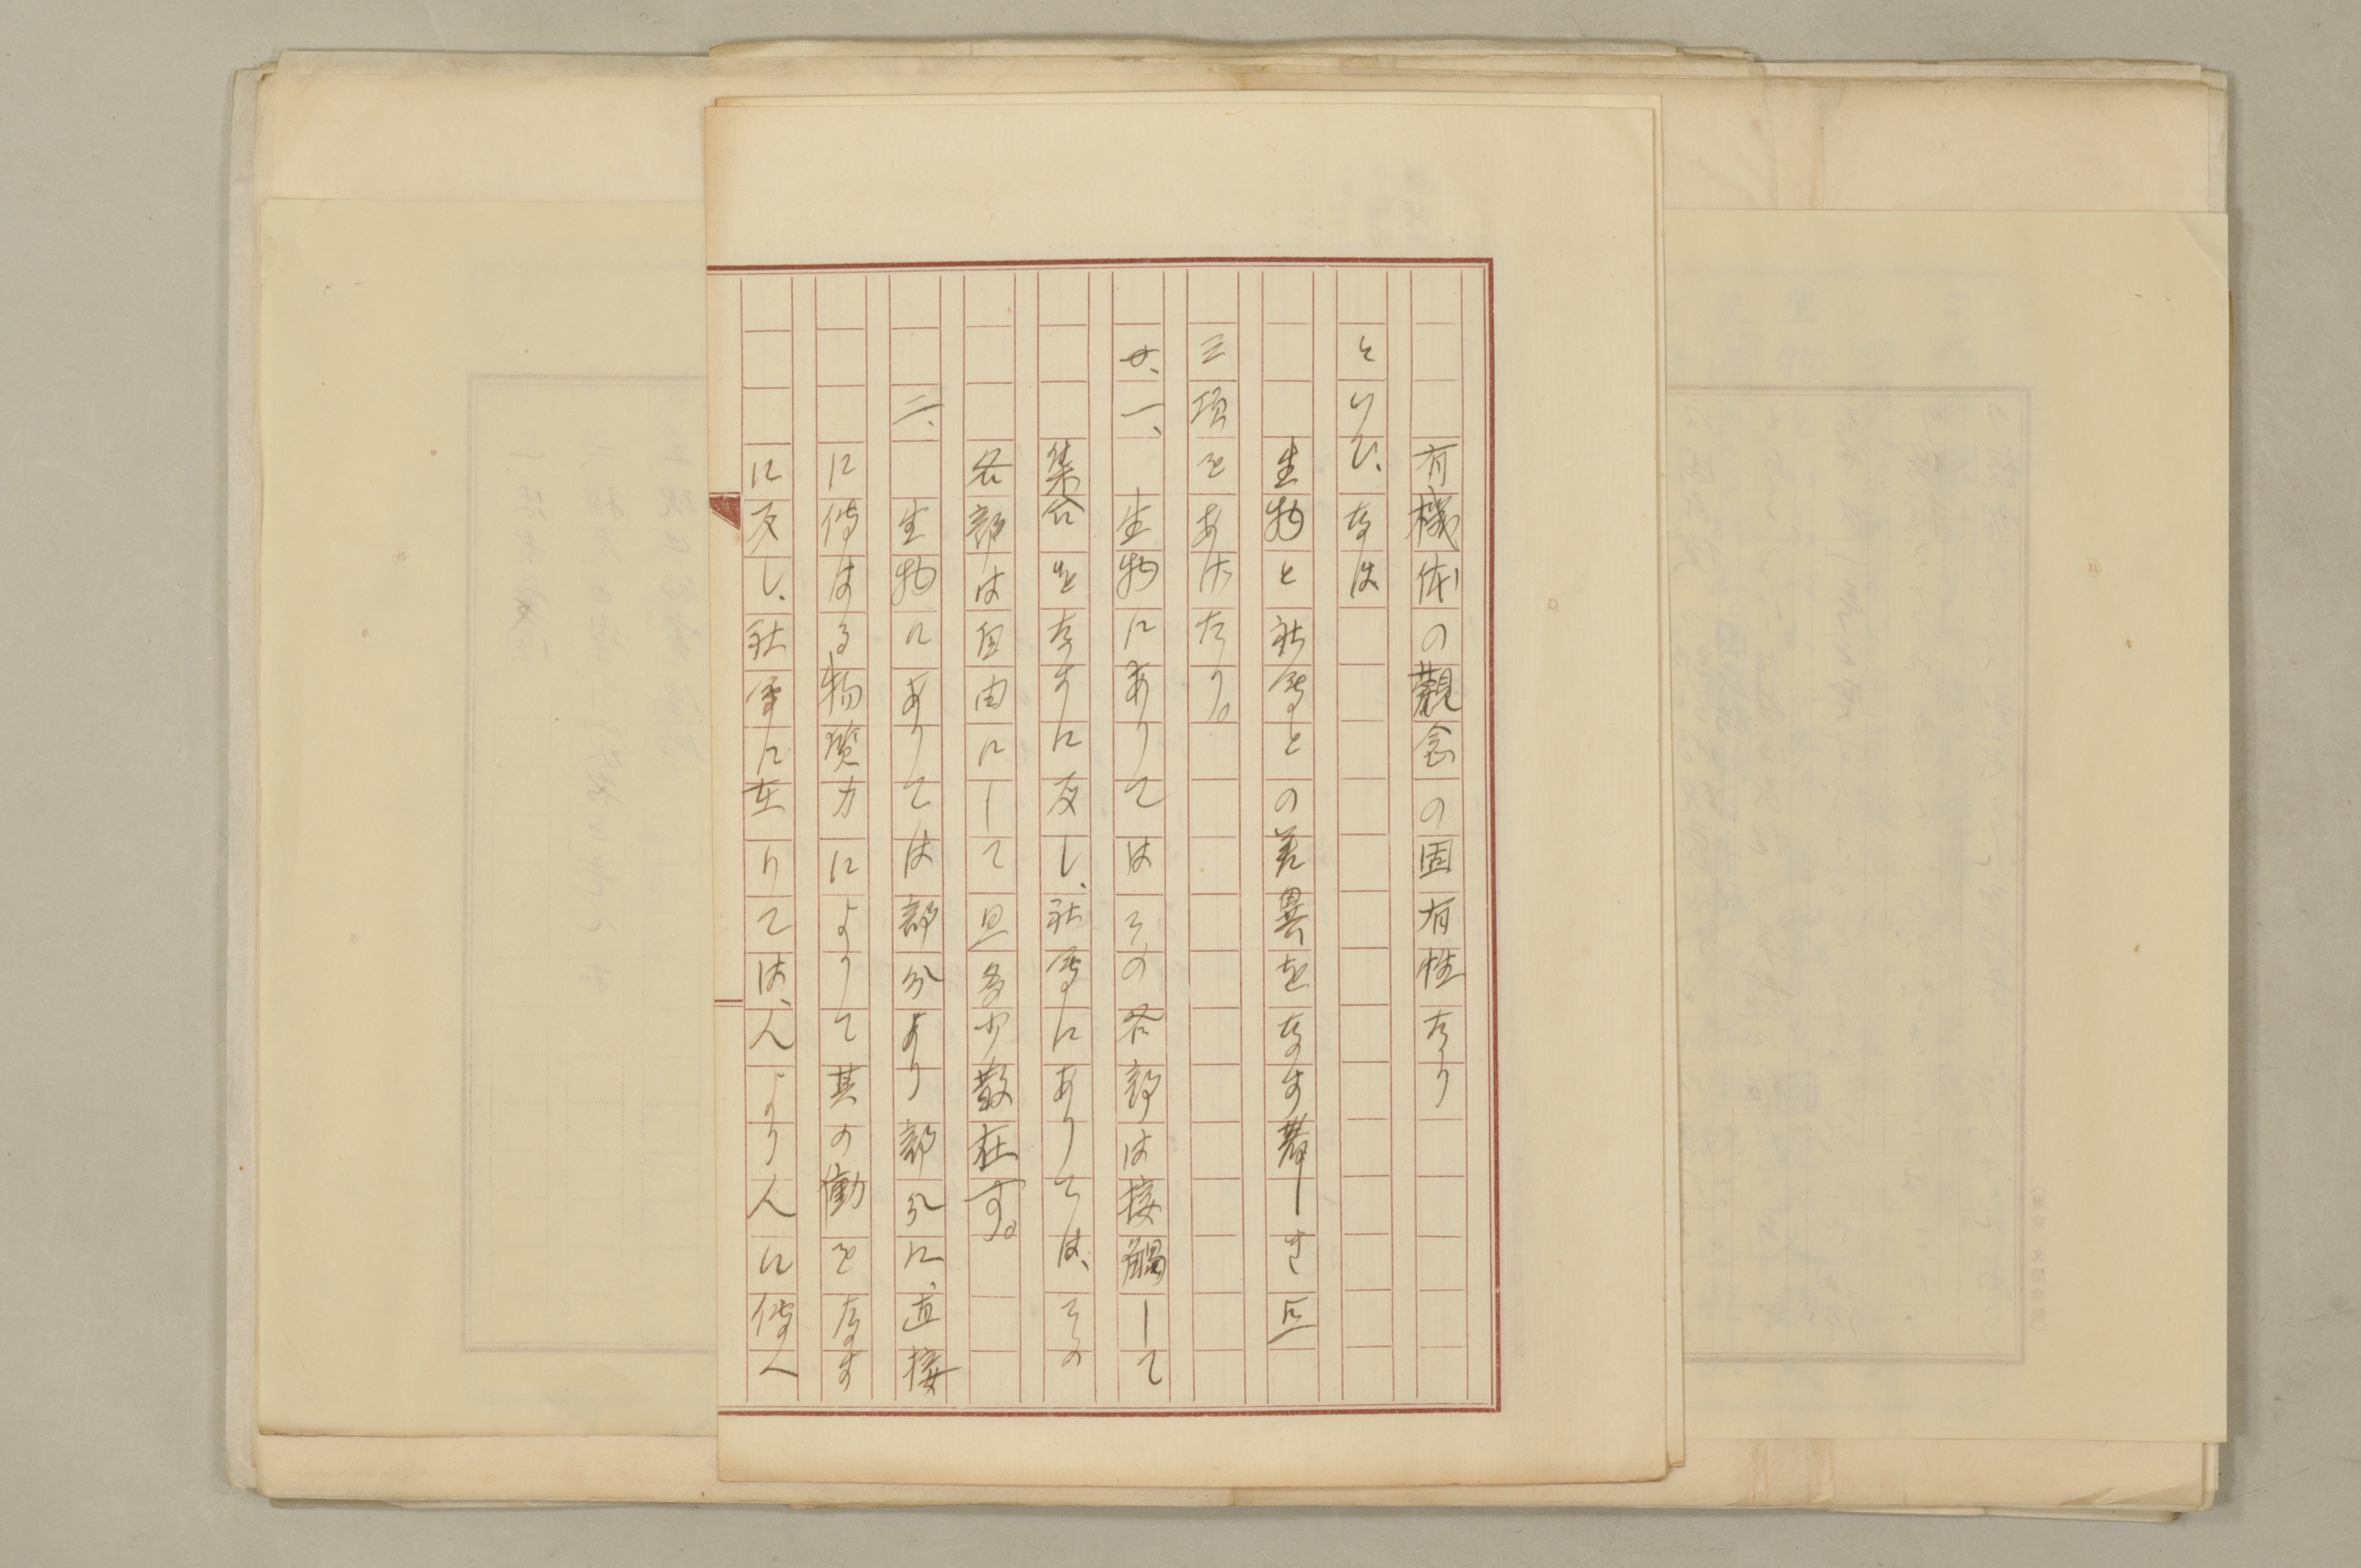 有機体の觀念の固有性なり
といひ、なほ
生物と社會との差異をなす著しき
三項をあげたり。
一、生物にありてはその各部は接觸して
集合をなすに反し、社會にありては、その
各部は自由にして且多少散在す。
二、生物にありては部分より部分に、直接
に傳はる物質力によりて其の働をなす
に反し、社會に在りては、人より人に傳へ